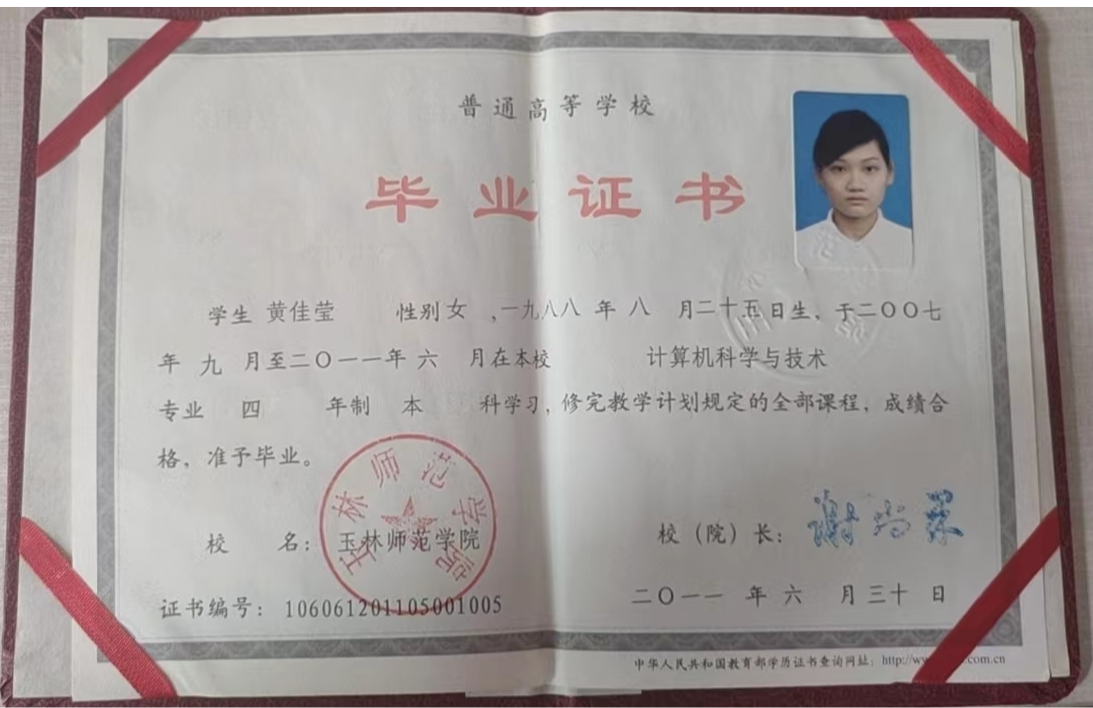 普通高等学校
毕业证书
学生 黄佳莹 性别 女 ,一九八八 年 八 月二十五日生, 于二〇〇七
年 九 月至二〇一一年 六 月在本校 计算机科学与技术
专业 四 年制 本 科学习, 修完教学计划规定的全部课程, 成绩合
格, 准予毕业。
玉林师范学院
校 名: 玉林师范学院
校(院)长: 谢尚果
证书编号: 106061201105001005
二〇一一 年 六 月三十 日
中华人民共和国教育部学历证书查询网址: http://w .com.cn